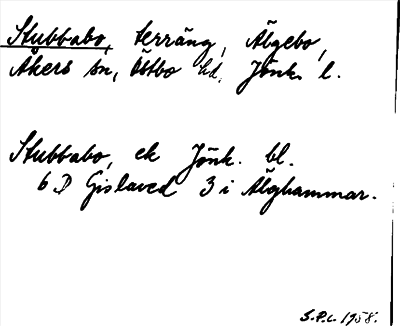 Stubbabo, terräng, Älgebo,
Åkers sn, Östbo hd, Jönk. l.
Stubbabo, ek Jönk. bl.
6 D Gislaved 3 i Älghammar.
S.P.L. 1958.